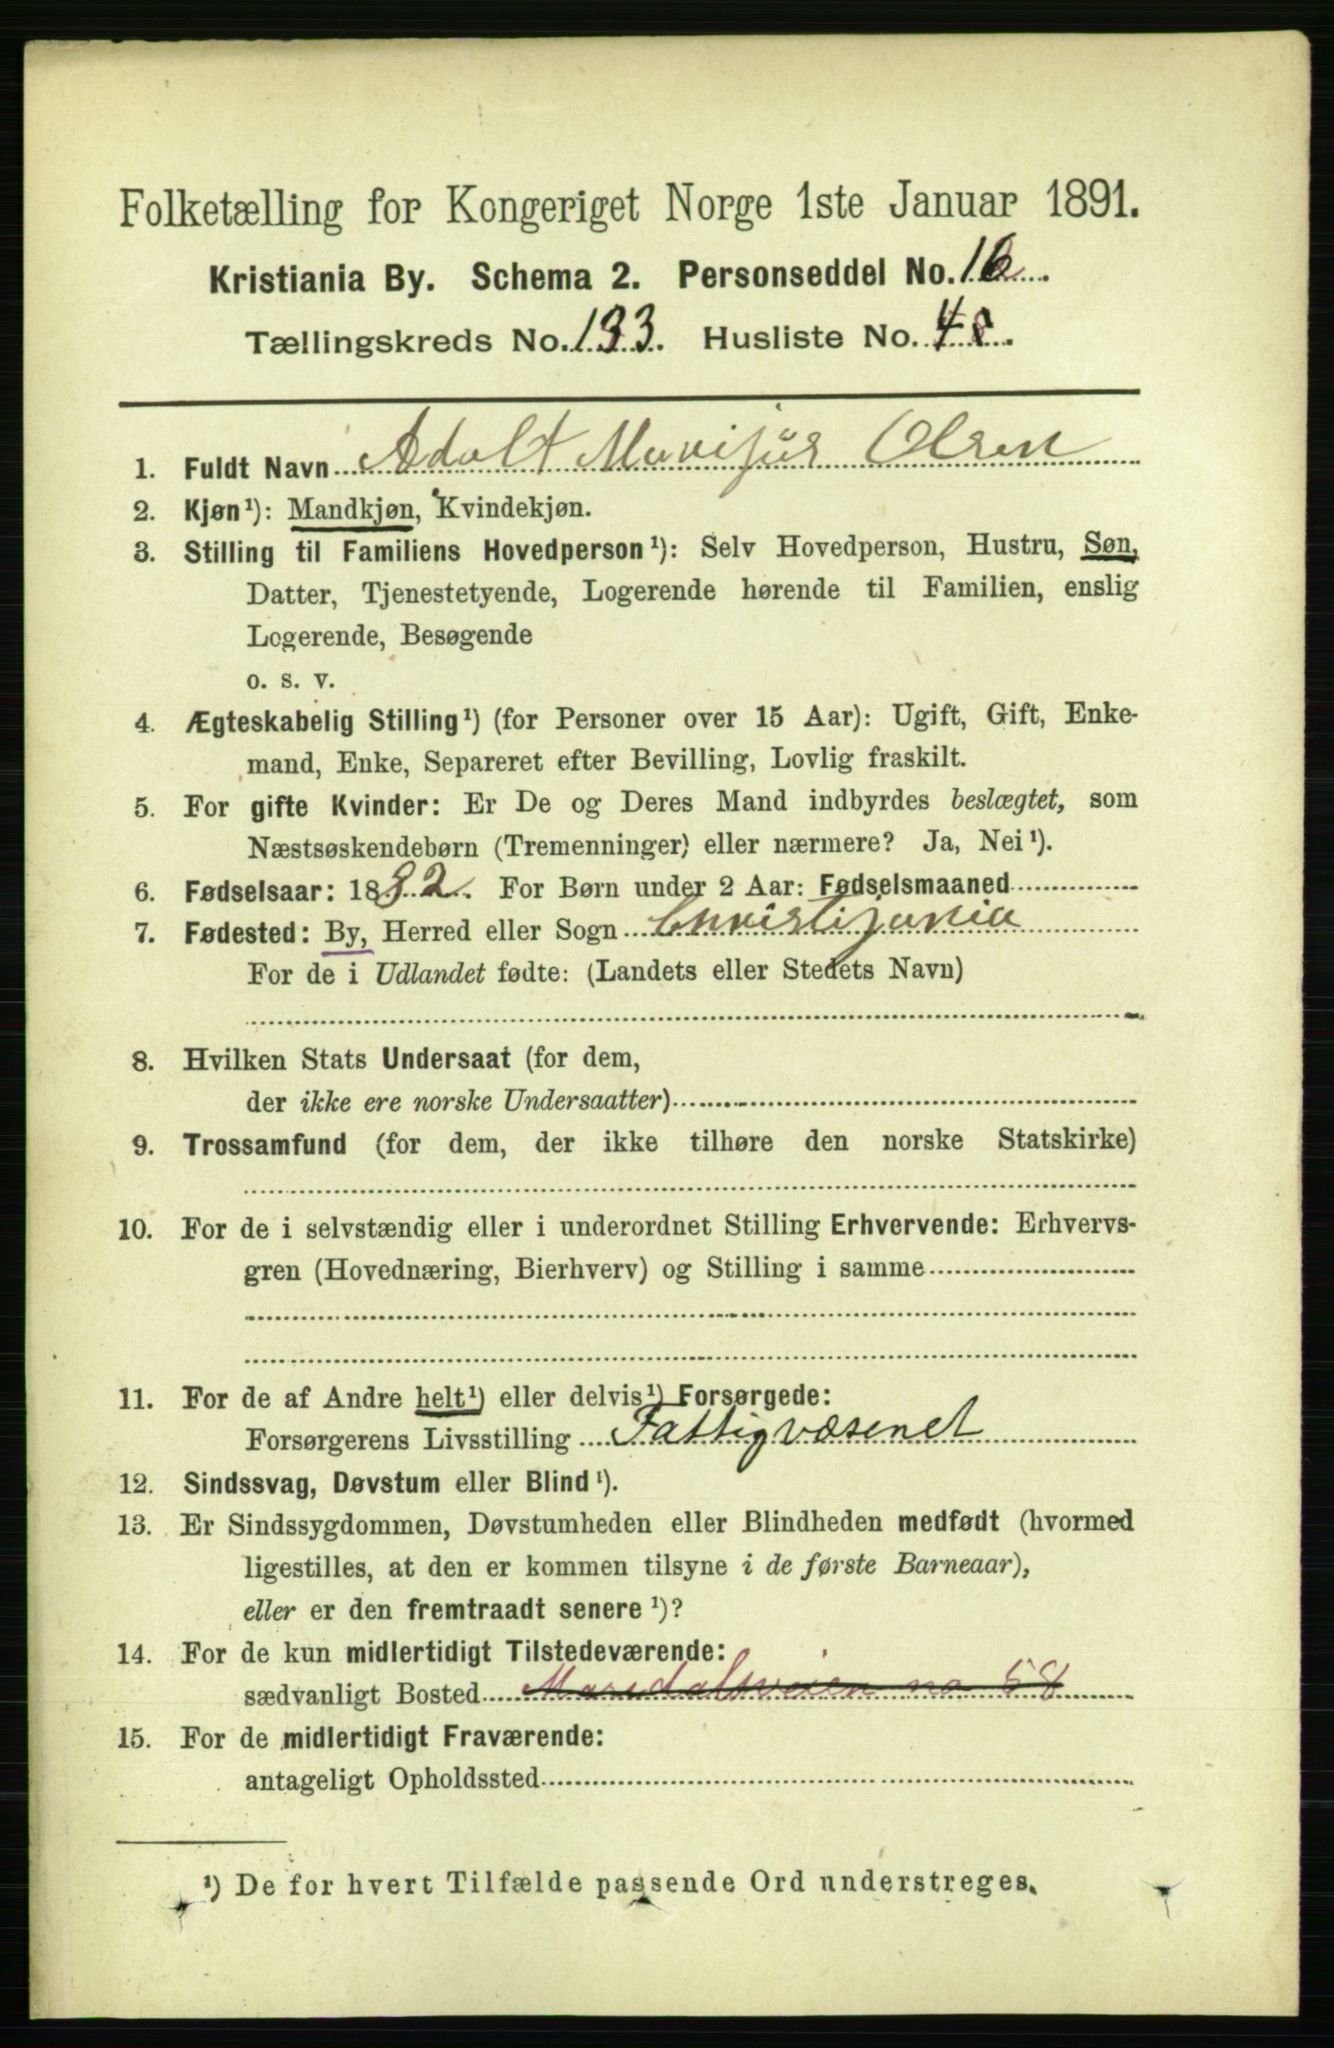 Folketælling for Kongeriget Norge 1ste Januar 1891.
Kristiania By. Schema 2. Personseddel No. 16.
Tællingskreds No. 133. Husliste No. 48.
1. Fuldt Navn Adolt Olsen
2. Kjøn¹): Mandkjøn, Kvindekjøn.
3. Stilling til Familiens Hovedperson¹): Selv Hovedperson, Hustru, Søn,
Datter, Tjenestetyende, Logerende hørende til Familien, enslig
Logerende, Besøgende
o. s. v.
4. Ægteskabelig Stilling¹) (for Personer over 15 Aar): Ugift, Gift, Enke-
mand, Enke, Separeret efter Bevilling, Lovlig fraskilt.
5. For gifte Kvinder: Er De og Deres Mand indbyrdes beslægtet, som
Næstsøskendebørn (Tremenninger) eller nærmere? Ja, Nei¹).
6. Fødselsaar: 1882. For Børn under 2 Aar: Fødselsmaaned
7. Fødested: By, Herred eller Sogn Christijania
For de i Udlandet fødte: (Landets eller Stedets Navn)
8. Hvilken Stats Undersaat (for dem,
der ikke ere norske Undersaatter)
9. Trossamfund (for dem, der ikke tilhøre den norske Statskirke)
10. For de i selvstændig eller i underordnet Stilling Erhvervende: Erhvervs-
gren (Hovednæring, Bierhverv) og Stilling i samme
11. For de af Andre helt¹) eller delvis¹) Forsørgede:
Forsørgerens Livsstilling Fattigvæsenet
12. Sindssvag, Døvstum eller Blind¹).
13. Er Sindssygdommen, Døvstumheden eller Blindheden medfødt (hvormed
ligestilles, at den er kommen tilsyne i de første Barneaar),
eller er den fremtraadt senere¹)?
14. For de kun midlertidigt Tilstedeværende:
sædvanligt Bosted Maridalsveien no 58
15. For de midlertidigt Fraværende:
antageligt Opholdssted
¹) De for hvert Tilfælde passende Ord understreges.